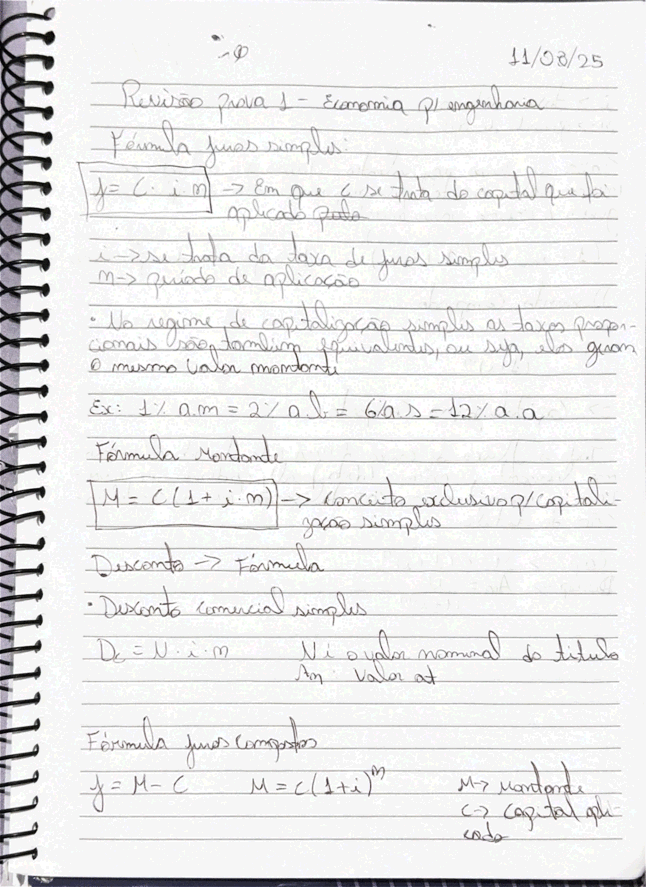 11/08/25
Revisão prova 1 - Economia p/ engenharia
Fórmula juros simples:
J = C. i. n -> Em que C se trata do capital que foi
aplicado
i -> se trata da taxa de juros simples
n -> período de aplicação
• No regime de capitalização simples as taxas propor-
cionais são também equivalentes, ou seja, elas geram
o mesmo valor montante
Ex: 1% a.m = 2% a.b = 6% a.s = 12% a.a
Fórmula Montante
M = C (1 + i . n) -> conceito exclusivo p/ capitali-
zação simples
Desconto -> Fórmula
• Desconto comercial simples
Dc = N . i . n N é o valor nominal do título
An: Valor at
Fórmula juros compostos
J = M - C M = C (1 + i)^n M -> Montante
C -> Capital apli-
cado